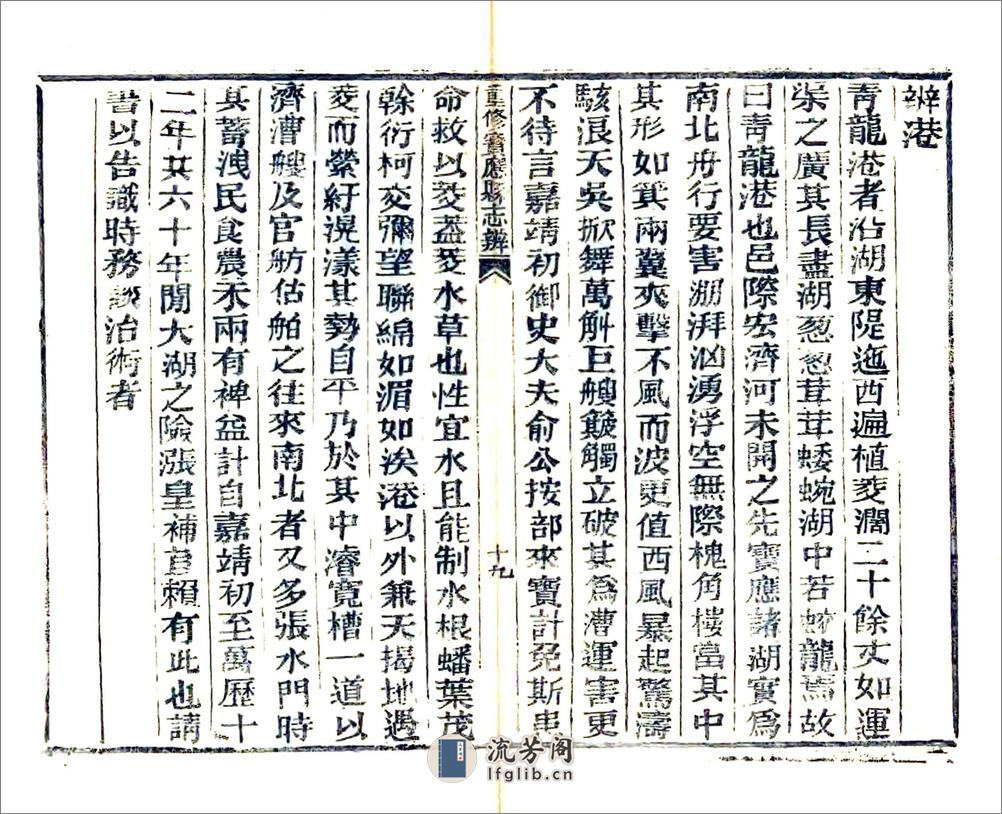 辨港
青龍港者沿湖東隄迤西遍植茭濶二十餘丈如運
渠之廣其長盡湖葱葱茸茸蜲蜿湖中若蛟龍焉故
曰青龍港也邑際宏濟河未開之先寶應諸湖實爲
南北舟行要害淜湃汹湧浮空無際槐角樓當其中
其形如箕兩翼夾擊不風而波更值西風暴起驚濤
駭浪天吳掀舞萬斛巨艘簸觸立破其爲漕運害更
不待言嘉靖初御史大夫俞公按部來寶計免斯患
重修寶應縣志辨
十九
命救以茭蓋茭水草也性宜水且能制水根蟠葉茂
餘衍柯交彌望聯綿如湄如涘港以外兼天揭地遇
茭而縈紆滉漾其勢自平乃於其中濬寬槽一道以
濟漕艘及官舫估舶之往來南北者又多張水門時
其蓄洩民食農禾兩有裨益計自嘉靖初至萬歷十
二年共六十年閒大湖之險漲皇補苴賴有此也請
書以告識時務談治術者
流芳阁
lfglib.cn